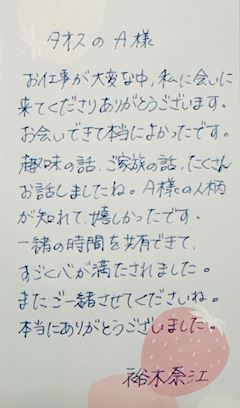 タオスの A様
お仕事が大変な中、私に会いに
来てくださりありがとうございます。
お会いできて本当によかったです。
趣味の話、ご家族の話、たくさん
お話しましたね。A様の人柄
が知れて、嬉しかったです。
一緒の時間を共有できて、
すごく心が満たされました。
またご一緒させてくださいね。
本当にありがとうございました。
裕木奈江